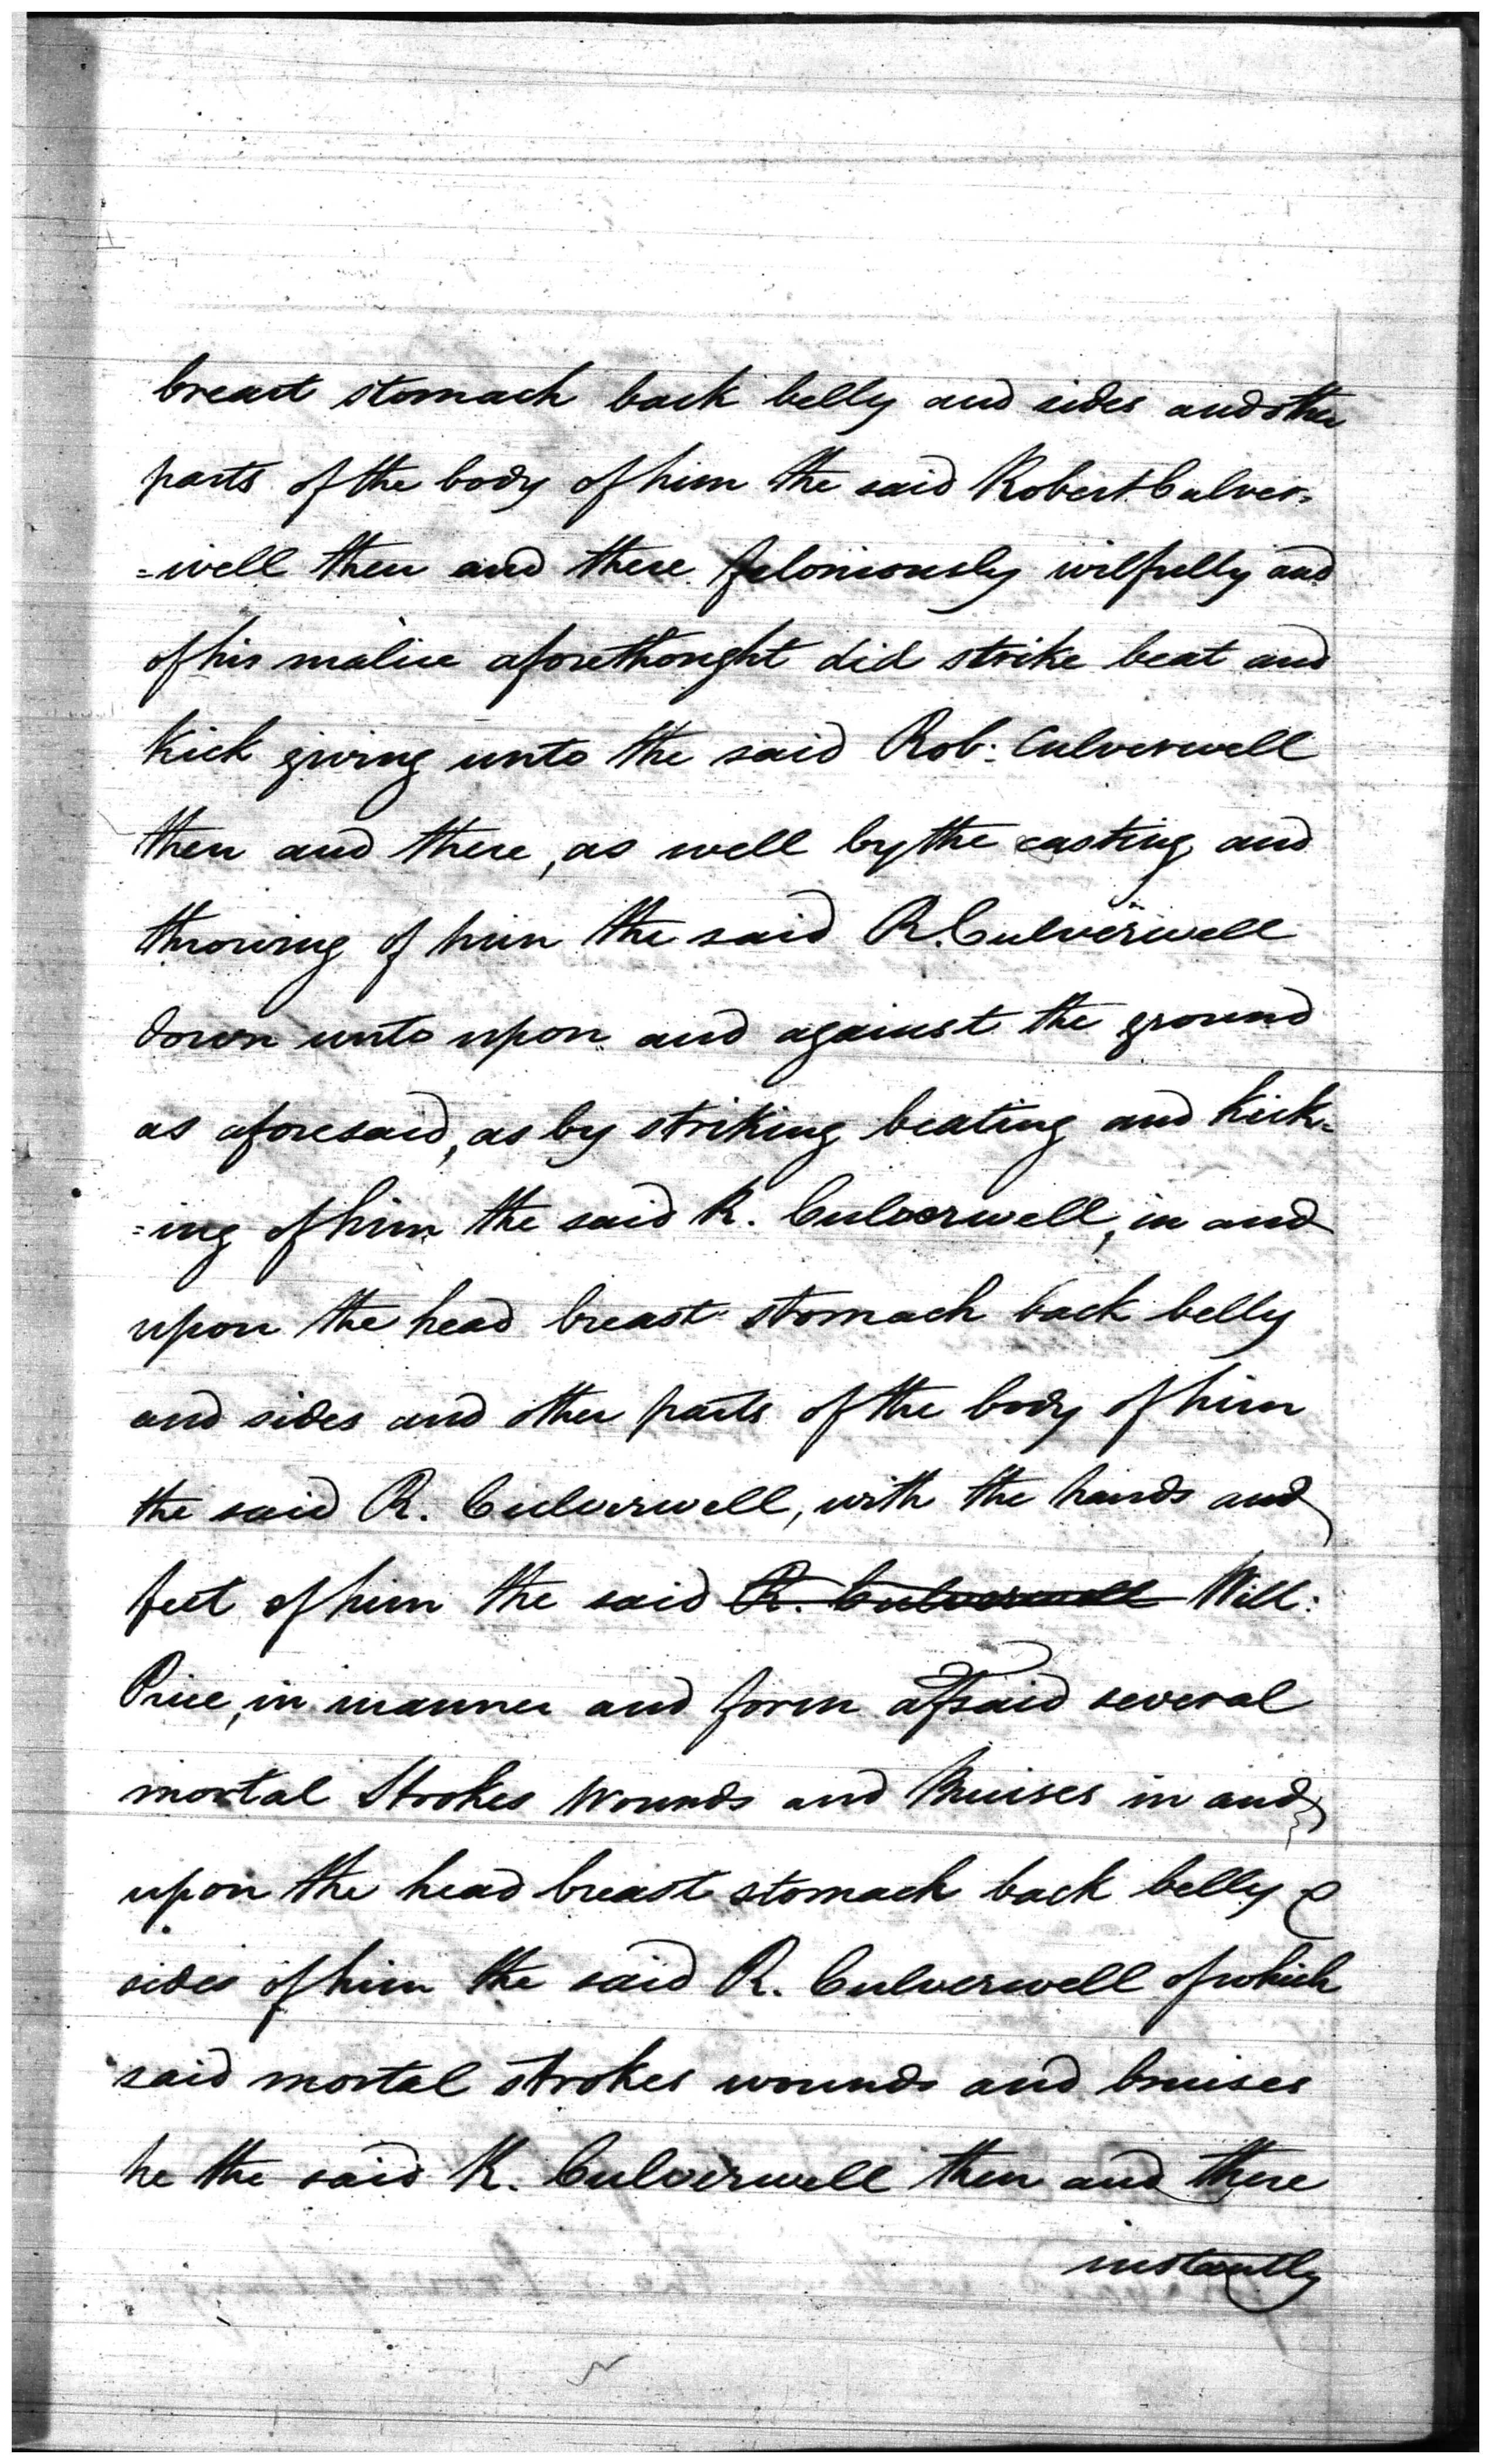 breast stomach back belly and sides and other
parts of the body of him the said Robert Culver=
=well then and there feloniously wilfully and
of his malice aforethought did strike beat and
Kick giving unto the said Rob: Culverwell
then and there, as well by the casting and
throwing of him the said R. Culverwell
down unto upon and against the ground
as aforesaid, as by striking beating and Kick=
=ing of him the said R. Culverwell, in and
upon the head breast stomach back belly
and sides and other parts of the body of him
the said R. Culverwell, with the hands and
feet of him the said R. Culverwell Will:
Price, in manner and form afsaid several
mortal Strokes Wounds and Bruises in and
upon the head breast stomach back belly &
sides of him the said R. Culverwell of which
said mortal strokes wounds and bruises
he the said R. Culverwell then and there
instantly